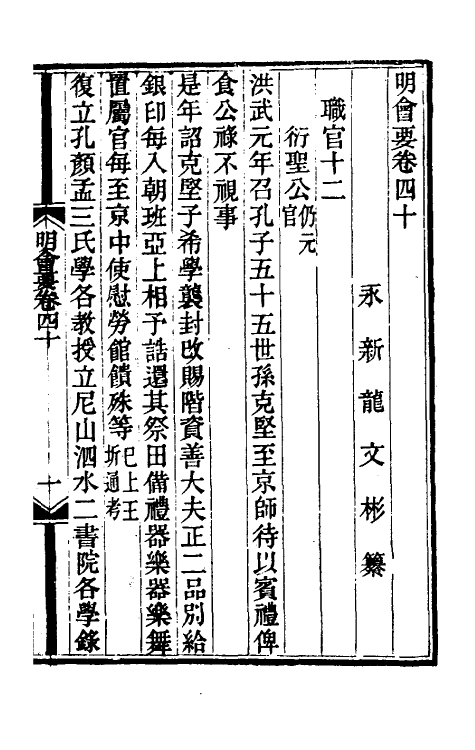 明會要卷四十
永新龍文彬纂
職官十二
衍聖公仍元官
洪武元年召孔子五十五世孫克堅至京師待以賓禮俾
食公祿不視事
是年詔克堅子希學襲封改賜階資善大夫正二品別給
銀印每入朝班亞上相予誥還其祭田備禮器樂器樂舞
置屬官每至京中使慰勞館餽殊等已上王圻通考
復立孔顏孟三氏學各教授立尼山泗水二書院各學錄
明會要卷四十
一